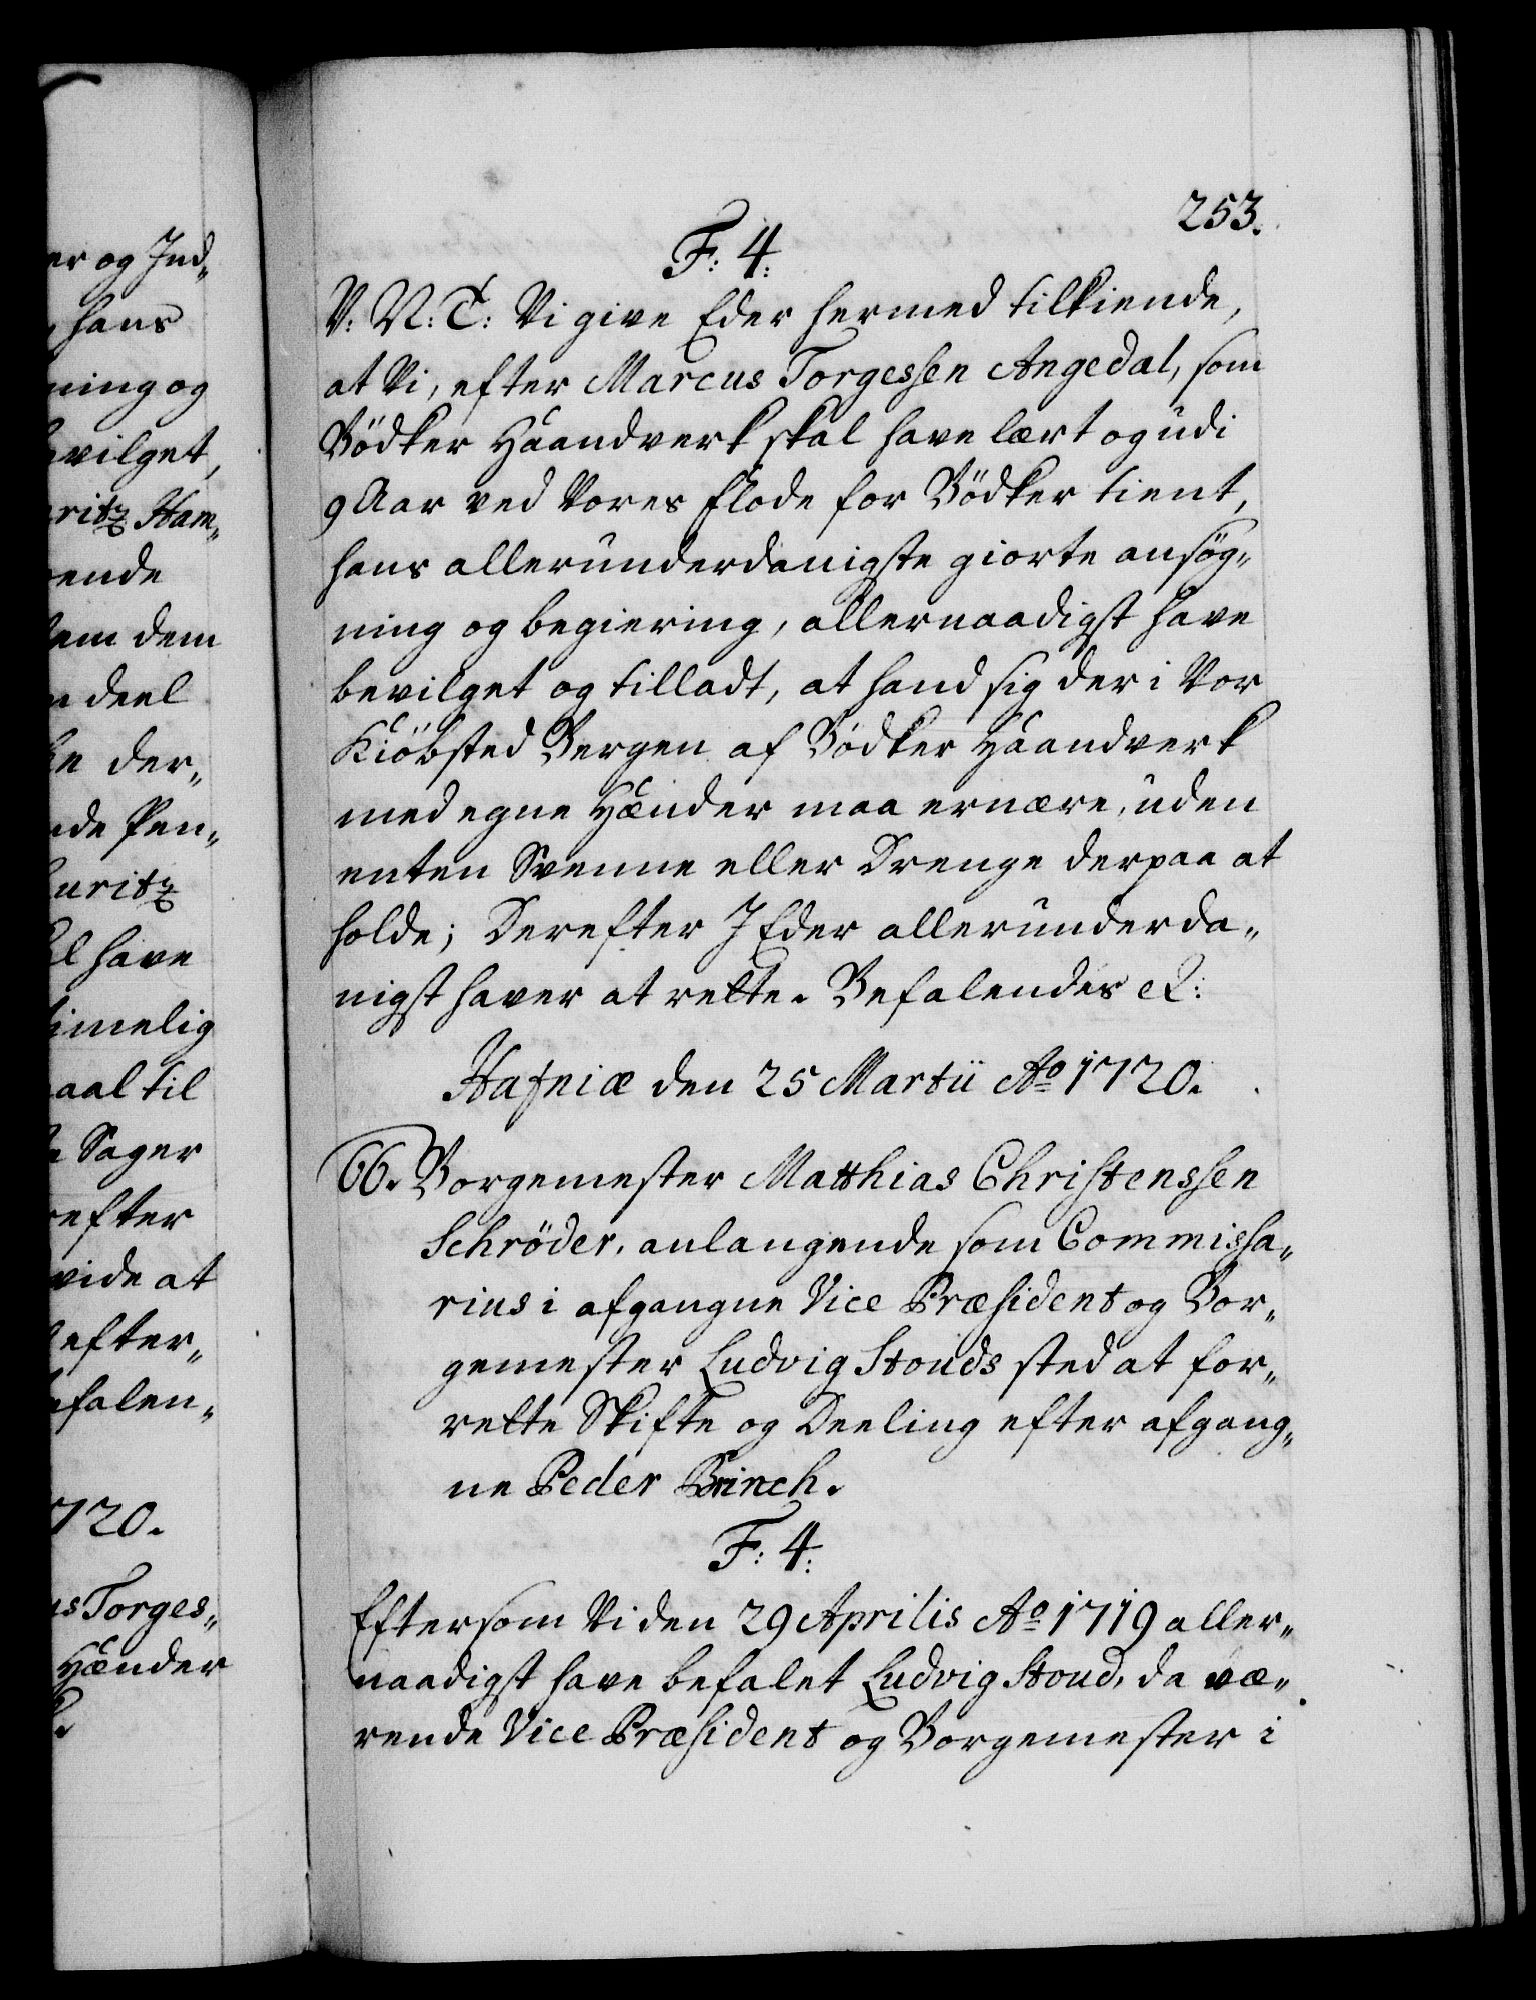 er og Ind„
hans
ning og
vilget,
ritz Ham„
ende
em dem
deel
der„
de Pen„
uritz
l have
imelig
aal til
Sager
efter
vide at
efter„
falen„
720.
s Torges„
Hænder
253.
F: 4:
V: N: T: Vi give Eder hermed tilkiende,
at Vi, efter Marcus Torgessen Angedal, som
Bödker Haandverk skal have lært og udi
9 Aar ved Vores Flode for Bödker tient,
hans allerunderdanigste giorte ansög„
ning og begiering, allernaadigst have
bevilget og tilladt, at hand sig der i Vor
Kiöbsted Bergen af Bödker Haandverk
med egne Hænder maa ernære, uden
enten Svenne eller Drenge derpaa at
holde; Derefter I Eder allerunderda„
nigst haver at rette. Befalendes etc:
Hafniæ den 25 Martii Ao 1720.
66. Borgemester Matthias Christenssen
Schröder, anlangende som Commissa„
rius i afgangne Vice Præsident og Bor„
gemester Ludvig Stouds sted at for„
rette Skifte og Deeling efter afgang„
ne Peder Brinch.
F: 4:
Eftersom Vi den 29 Aprilis Ao 1719 aller„
naadigst have befalet Ludvig Stoud, da væ„
rende Vice Præsident og Borgemester i